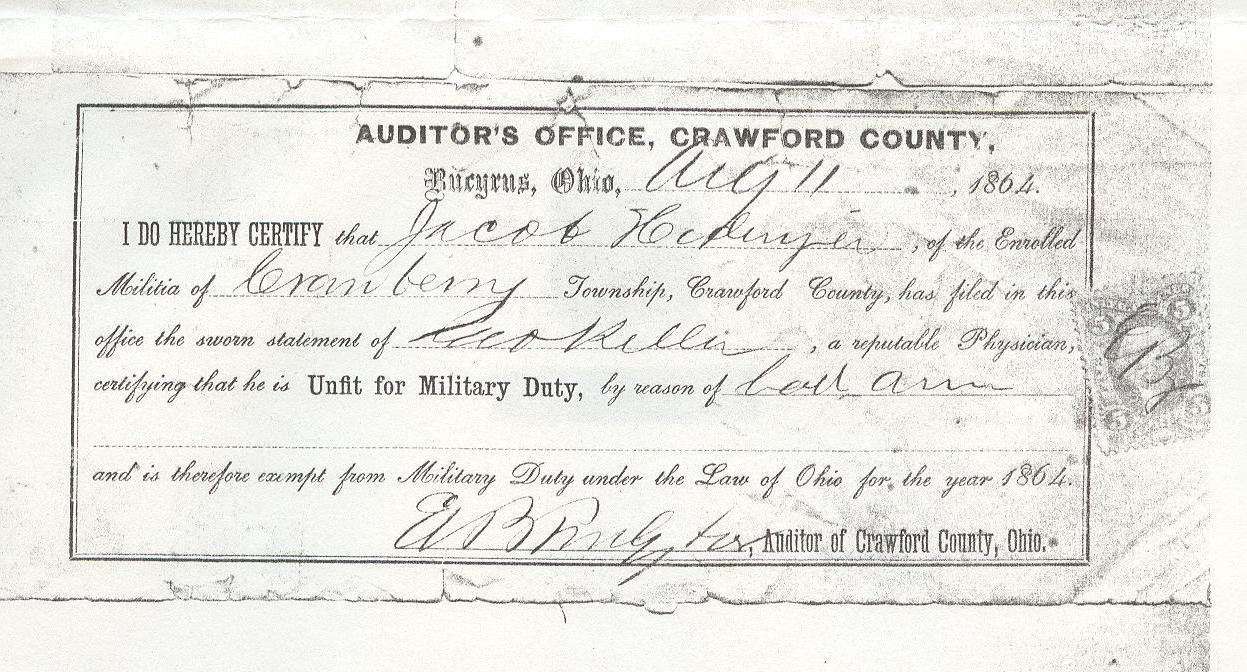 AUDITOR'S OFFICE, CRAWFORD COUNTY,
Bucyrus, Ohio, Aug 11, 1864.
I DO HEREBY CERTIFY that Jacob, of the Enrolled
Militia of Cranberry Township, Crawford County, has filed in this
office the sworn statement of, a reputable Physician,
certifying that he is Unfit for Military Duty, by reason of bad arm
and is therefore exempt from Military Duty under the Law of Ohio for the year 1864.
, Auditor of Crawford County, Ohio.
5 5
5 5